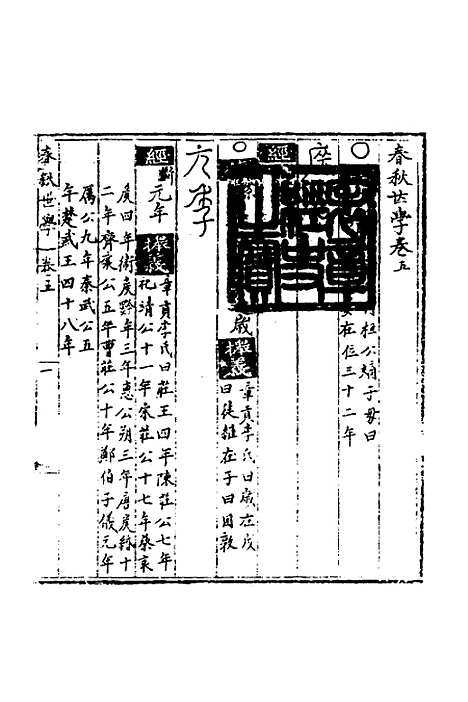 春秋世學卷五
桓公嫡子母曰
在位三十二年
經
歲
據義
章貢李氏曰歲在戊
曰徒維在子曰困敦
經
元年
據義
章貢李氏曰莊王四年陳莊公七年
杞靖公十一年宋莊公十七年蔡哀
侯四年衛侯黔牟三年惠公朔三年唐侯絲十
二年齊襄公五年曹莊公十年鄭伯子儀元年
厲公九年秦武公五
年楚武王四十八年
春秋世學
卷五
一